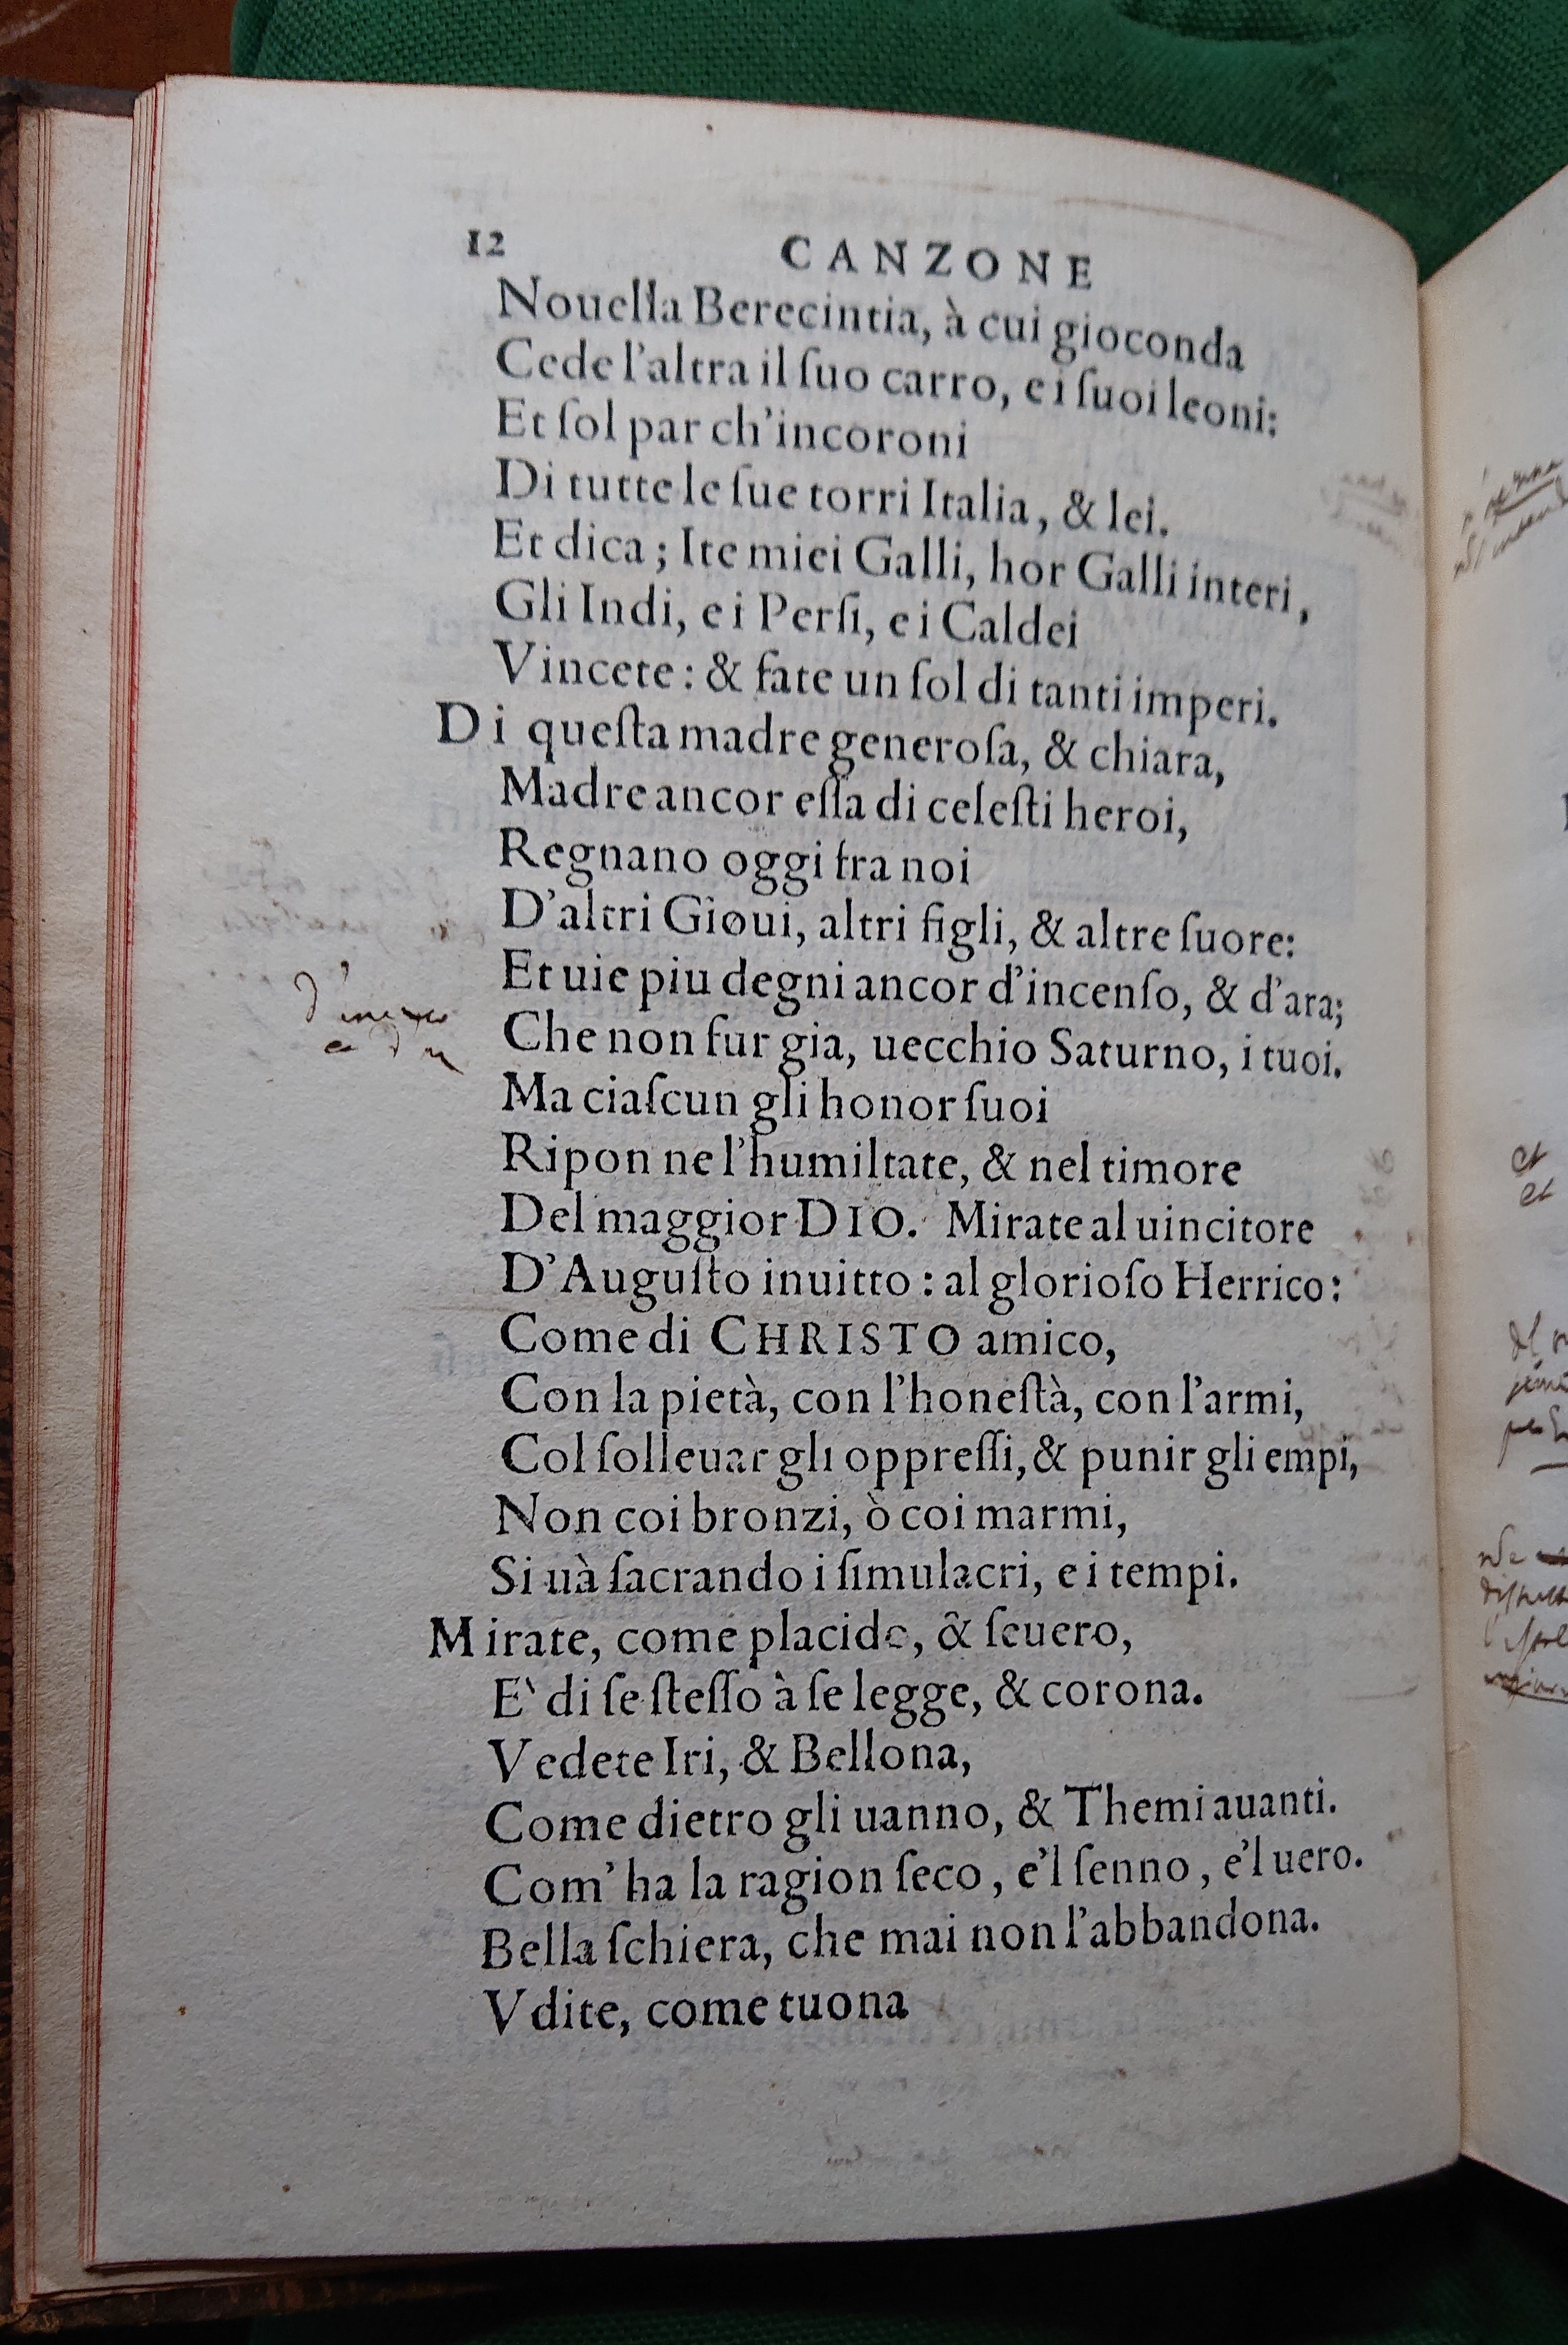 12 CANZONE
Nouella Berecintia, à cui gioconda
Cede l'altra il ſuo carro, e i ſuoi leoni:
Et ſol par ch'incoroni
Di tutte le ſue torri Italia, & lei.
Et dica; Ite miei Galli, hor Galli interi,
Gli Indi, e i Perſi, e i Caldei
Vincete: & fate un ſol di tanti imperi.
Di queſta madre generoſa, & chiara,
Madre ancor eſſa di celeſti heroi,
Regnano oggi fra noi
D'altri Gioui, altri figli, & altre ſuore:
Et uie piu degni ancor d'incenſo, & d'ara;
Che non fur gia, uecchio Saturno, i tuoi.
Ma ciaſcun gli honor ſuoi
Ripon ne l'humiltate, & nel timore
Del maggior DIO. Mirate al uincitore
D'Auguſto inuitto: al glorioſo Herrico:
Come di CHRISTO amico,
Con la pietà, con l'honeſtà, con l'armi,
Col ſolleuar gli oppreſſi, & punir gli empi,
Non coi bronzi, ò coi marmi,
Si uà ſacrando i ſimulacri, e i tempi.
Mirate, come placido, & ſeuero,
E` di ſe ſteſſo à ſe legge, & corona.
Vedete Iri, & Bellona,
Come dietro gli uanno, & Themi auanti.
Com' ha la ragion ſeco, e'l ſenno, e'l uero.
Bella ſchiera, che mai non l'abbandona.
Vdite, come tuona
et
et